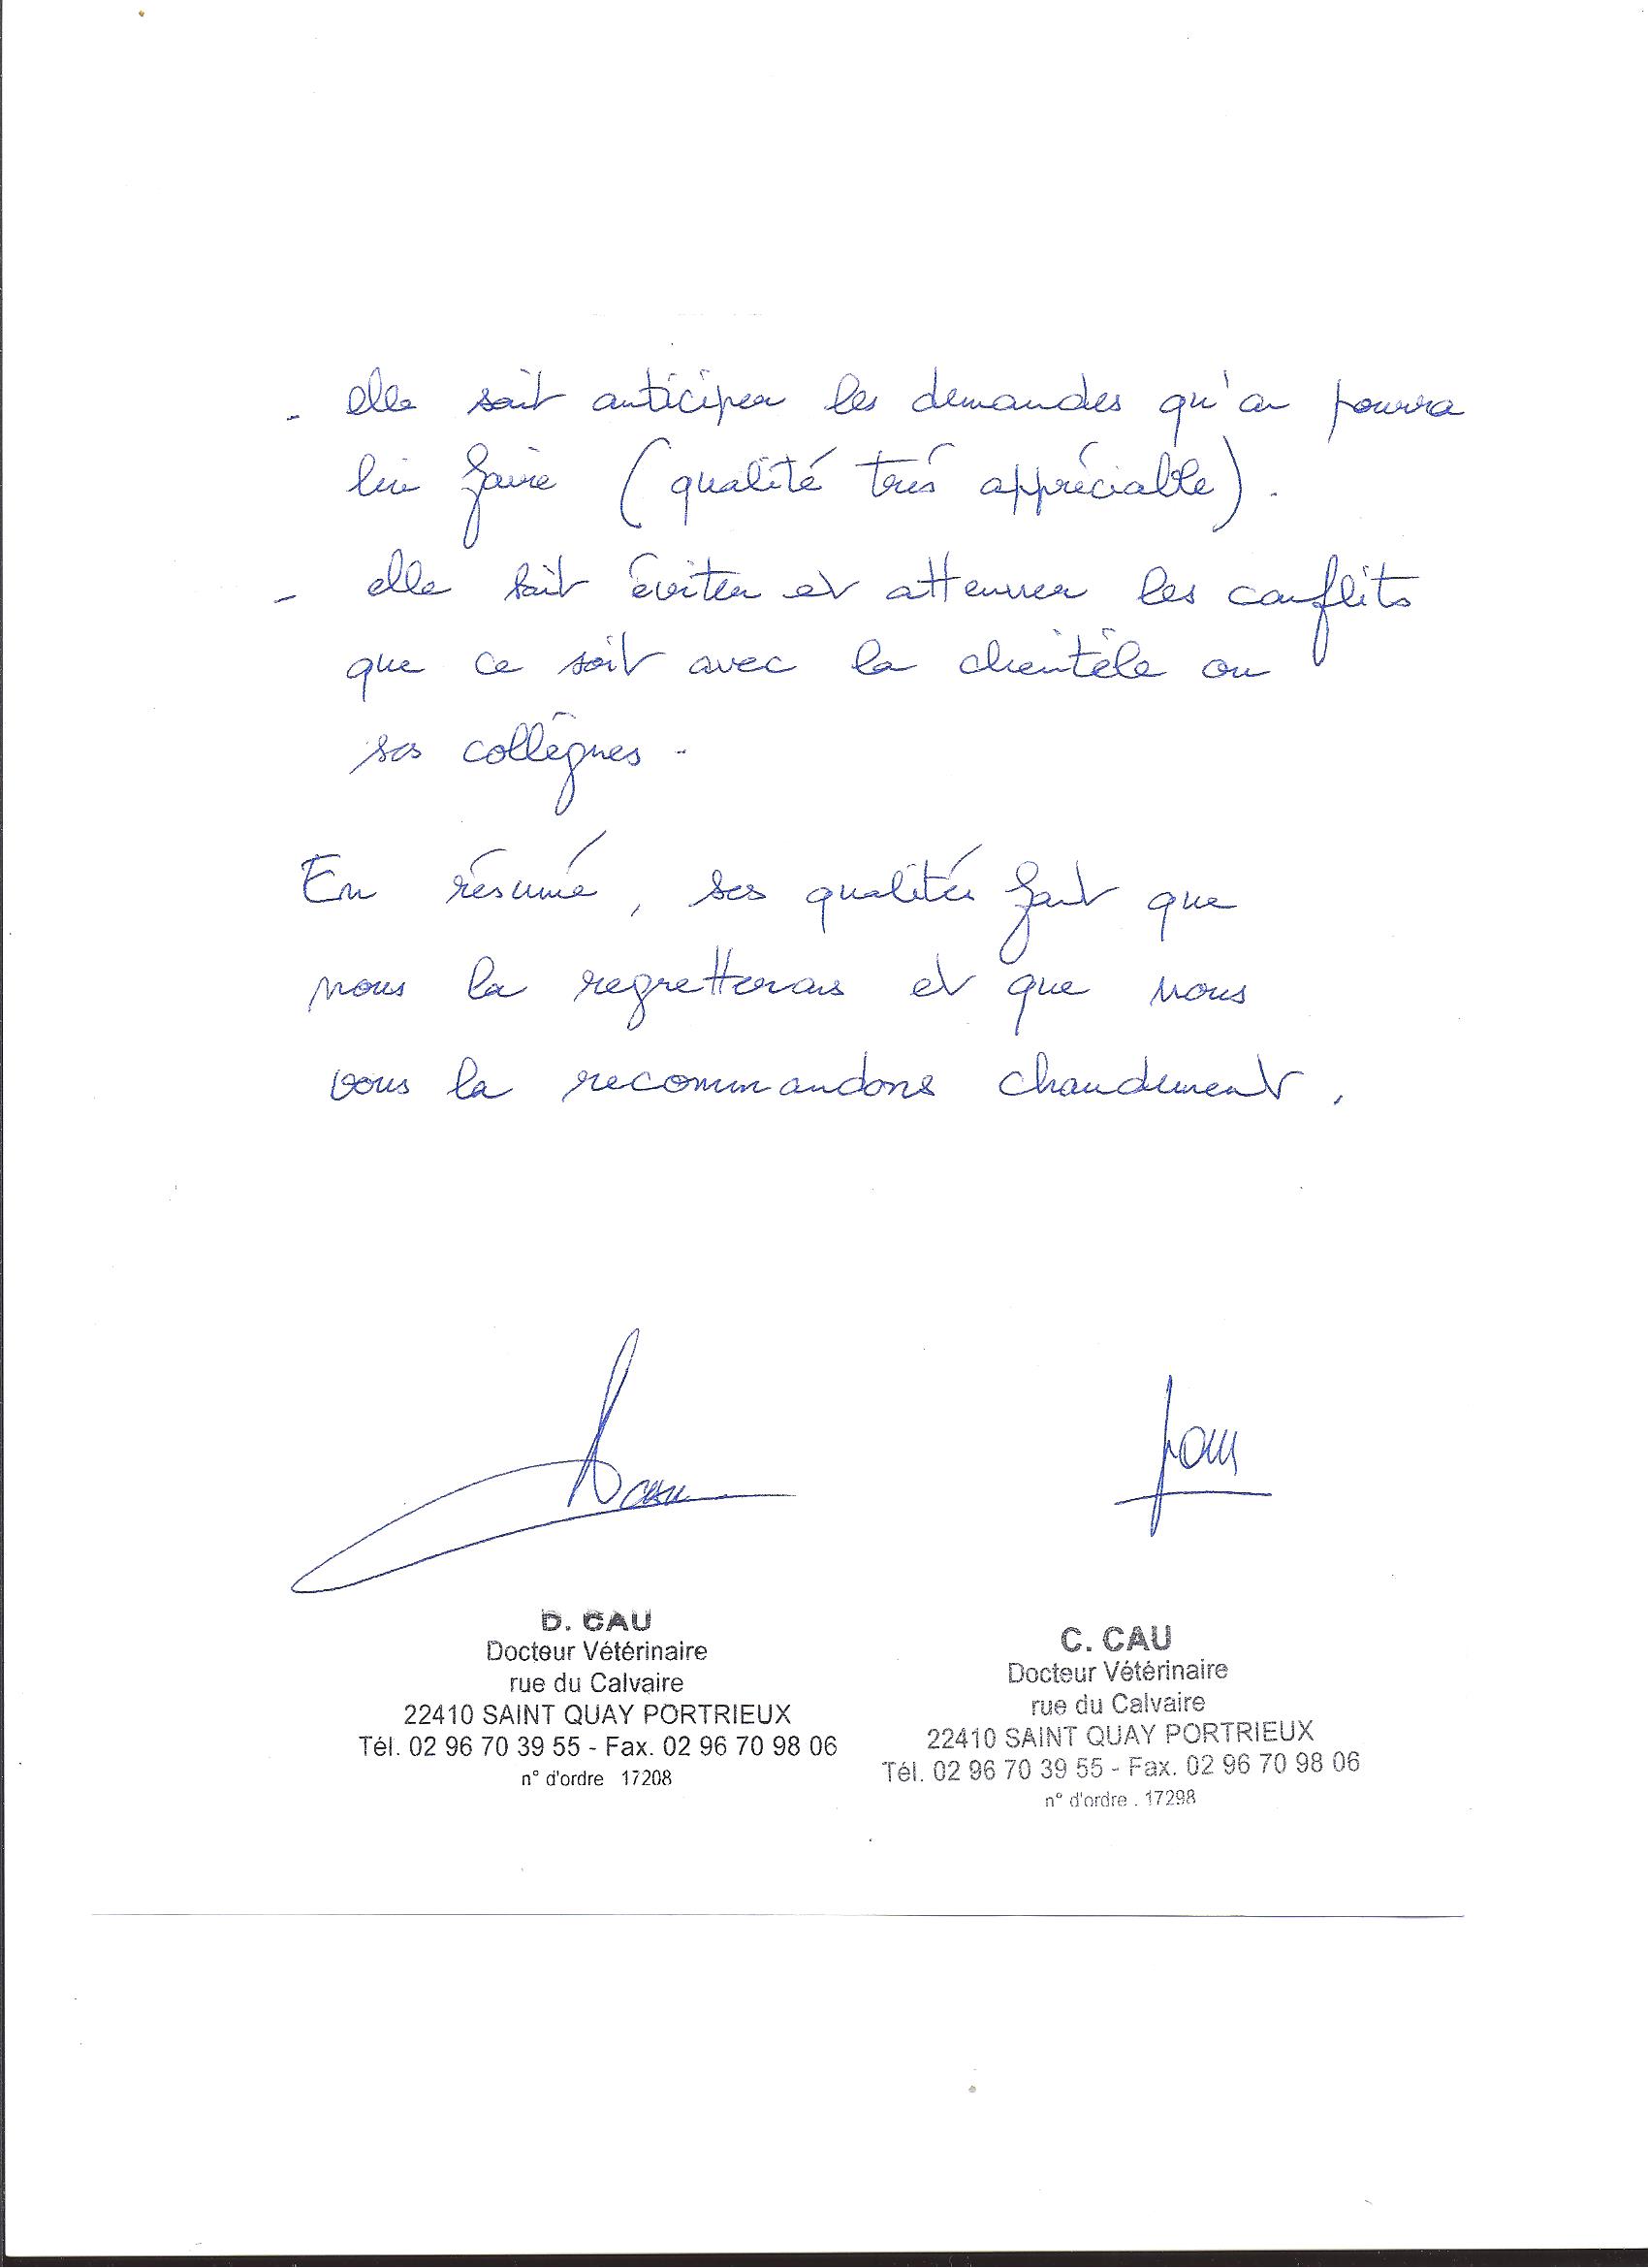 - elle sait anticiper les demandes qu'on pourra
lui faire (qualité très appréciable).
- elle sait éviter et attenuer les conflits
que ce soit avec la clientèle ou
ses collègues.
En résumé, ses qualités font que
nous la regretterons et que nous
vous la recommandons chaudement.
D. CAU
Docteur Vétérinaire
rue du Calvaire
22410 SAINT QUAY PORTRIEUX
Tél. 02 96 70 39 55 - Fax. 02 96 70 98 06
n° d'ordre 17208
C. CAU
Docteur Vétérinaire
rue du Calvaire
22410 SAINT QUAY PORTRIEUX
Tél. 02 96 70 39 55 - Fax. 02 96 70 98 06
n° d'ordre . 17298